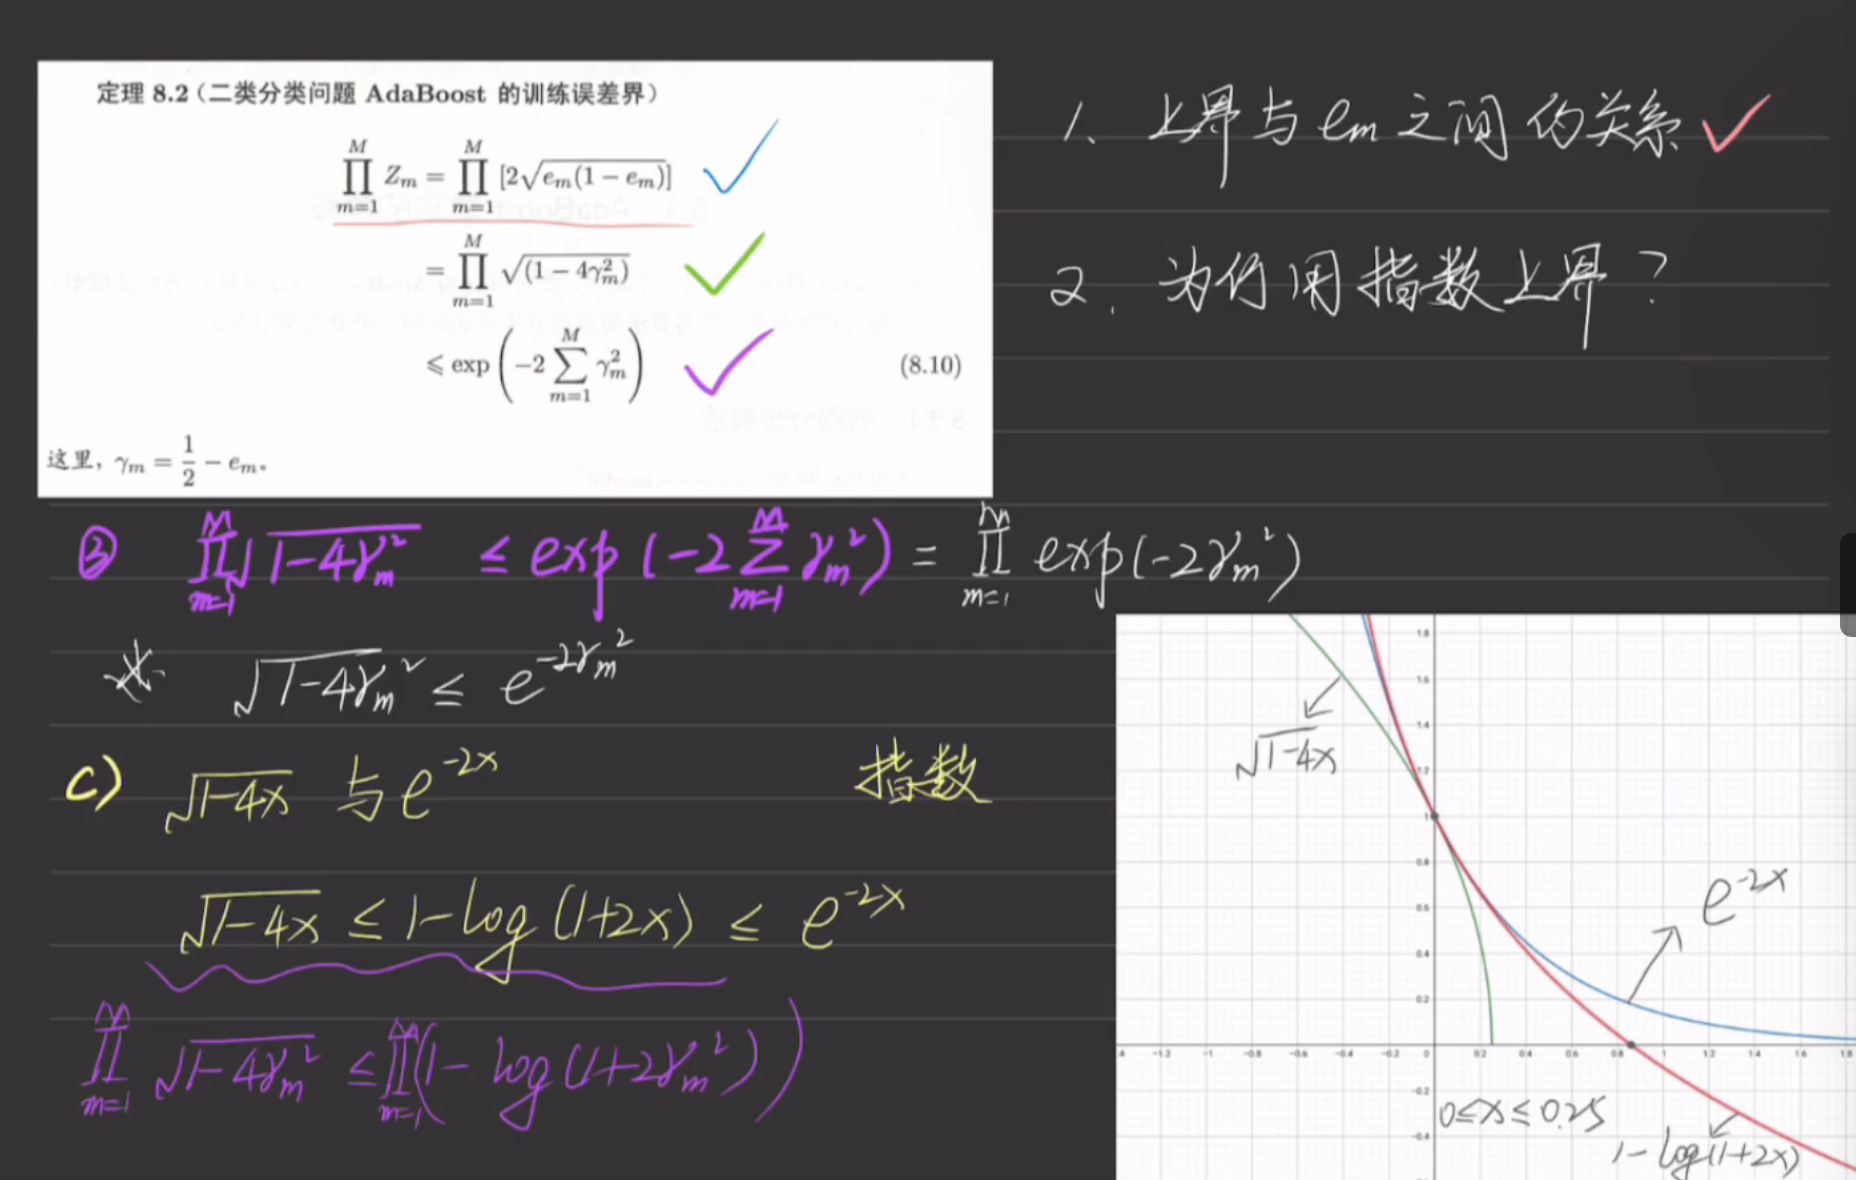 定理 8.2（二类分类问题 AdaBoost 的训练误差界）
∏_{m=1}^{M} Z_m = ∏_{m=1}^{M} [2√(e_m(1 − e_m))]
= ∏_{m=1}^{M} √(1 − 4γ_m^2)
⩽ exp(−2 ∑_{m=1}^{M} γ_m^2) (8.10)
这里，γ_m = 1/2 − e_m。
1. 上界与 e_m 之间的关系
2. 为何用指数上界？
③ ∏_{m=1}^{M} √(1−4γ_m^2) ≤ exp(−2 ∑_{m=1}^{M} γ_m^2) = ∏_{m=1}^{M} exp(−2γ_m^2)
√(1−4γ_m^2) ≤ e^{−2γ_m^2}
c) √(1−4x) 与 e^{−2x} 指数
√(1−4x) ≤ 1−log(1+2x) ≤ e^{−2x}
∏_{m=1}^{M} √(1−4γ_m^2) ≤ ∏_{m=1}^{M} (1−log(1+2γ_m^2))
√(1−4x)
e^{−2x}
0≤x≤0.25
1−log(1+2x)
1.8
1.6
1.4
1.2
1
0.8
0.6
0.4
0.2
-1.2 -1 -0.8 -0.6 -0.4 -0.2 0 0.2 0.4 0.6 0.8 1 1.2 1.4 1.6 1.8
-0.2
-0.4